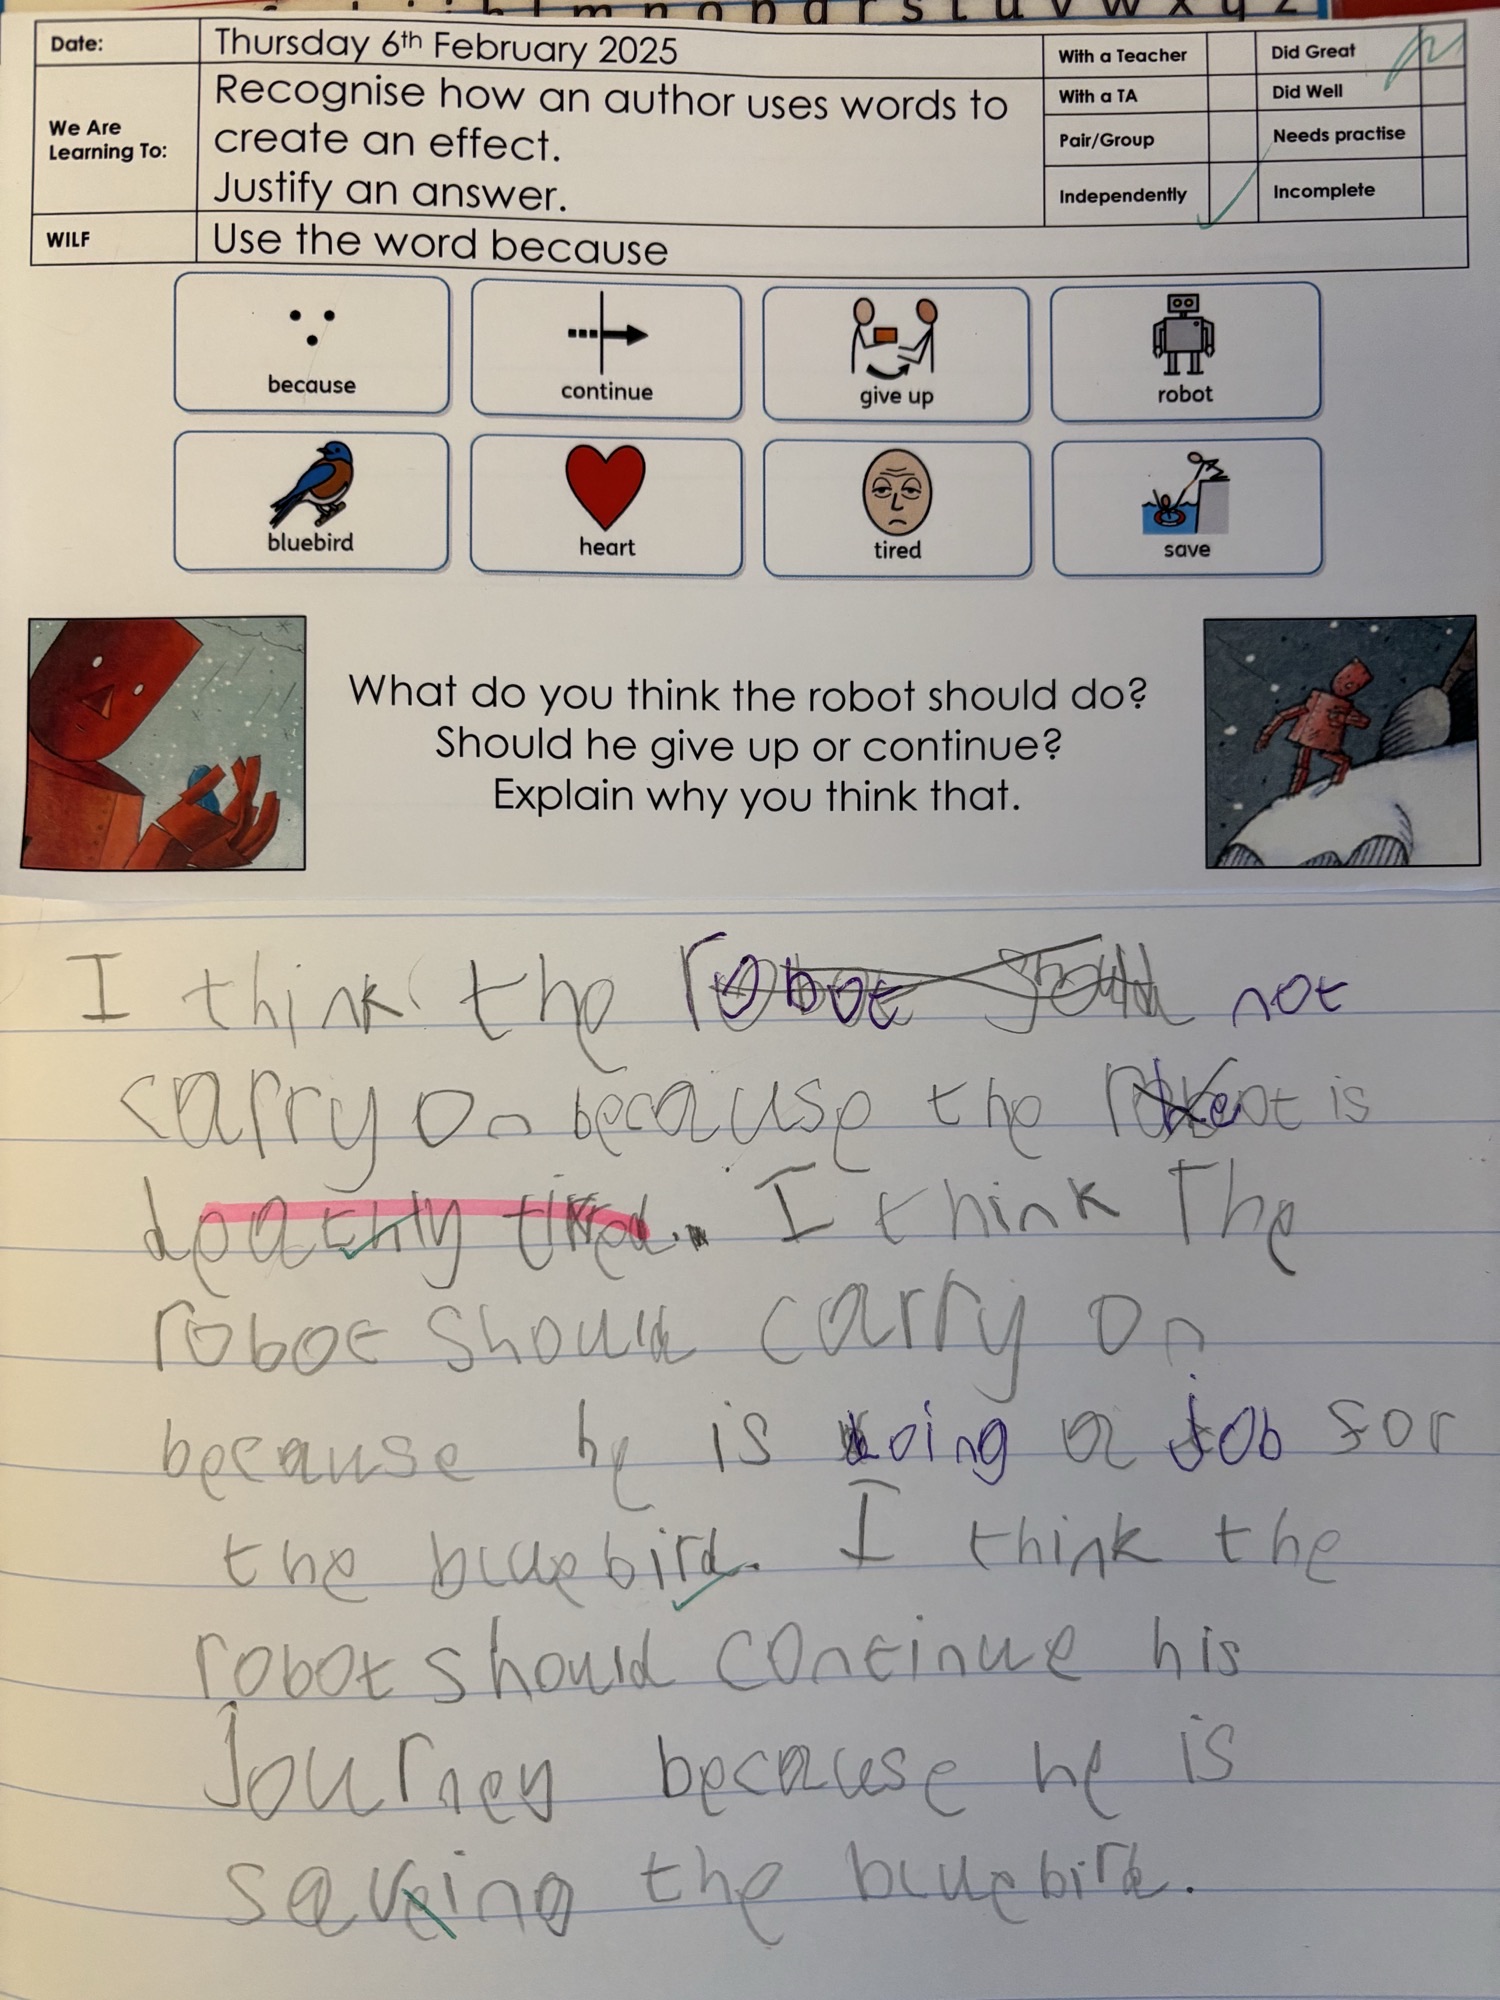 Date:
Thursday 6th February 2025
We Are
Learning To:
Recognise how an author uses words to
create an effect.
Justify an answer.
WILF
Use the word because
With a Teacher
Did Great
With a TA
Did Well
Pair/Group
Needs practise
Independently
Incomplete
because
continue
give up
robot
bluebird
heart
tired
save
What do you think the robot should do?
Should he give up or continue?
Explain why you think that.
I think the robot should not
carry on because the robot is
deathly tired. I think The
robot should carry on
because he is doing a job for
the bluebird. I think the
robot should continue his
Journey because he is
saveing the bluebird.